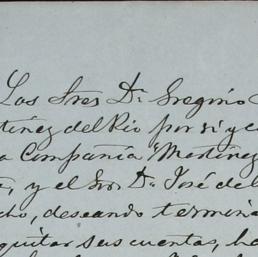 Los Sres Dn. Gregorio
tinez del Rio por si y c
a Compañia "Martinez
, y el Sor. Dn. José del
cho, deseando termina
quitar sus cuentas, ha